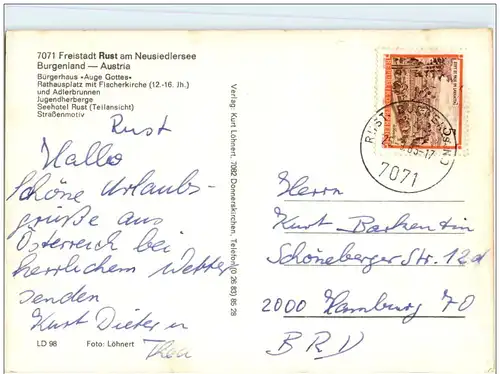 7071 Freistadt Rust am Neusiedlersee
Burgenland — Austria
Bürgerhaus »Auge Gottes«
Rathausplatz mit Fischerkirche (12.-16. Jh.)
und Adlerbrunnen
Jugendherberge
Seehotel Rust (Teilansicht)
Straßenmotiv
Rust
Hallo
Schöne Urlaubs-
grüße aus
Österreich bei
herrlichem Wetter
senden
Kurt Dieter u
Thea
LD 98 Foto: Löhnert
Verlag: Kurt Löhnert, 7082 Donnerskirchen, Telefon (0 26 83) 85 28
RUST
7071
Herrn
Kurt Barkentin
Schöneberger Str. 12d
2000 Hamburg 70
BRD